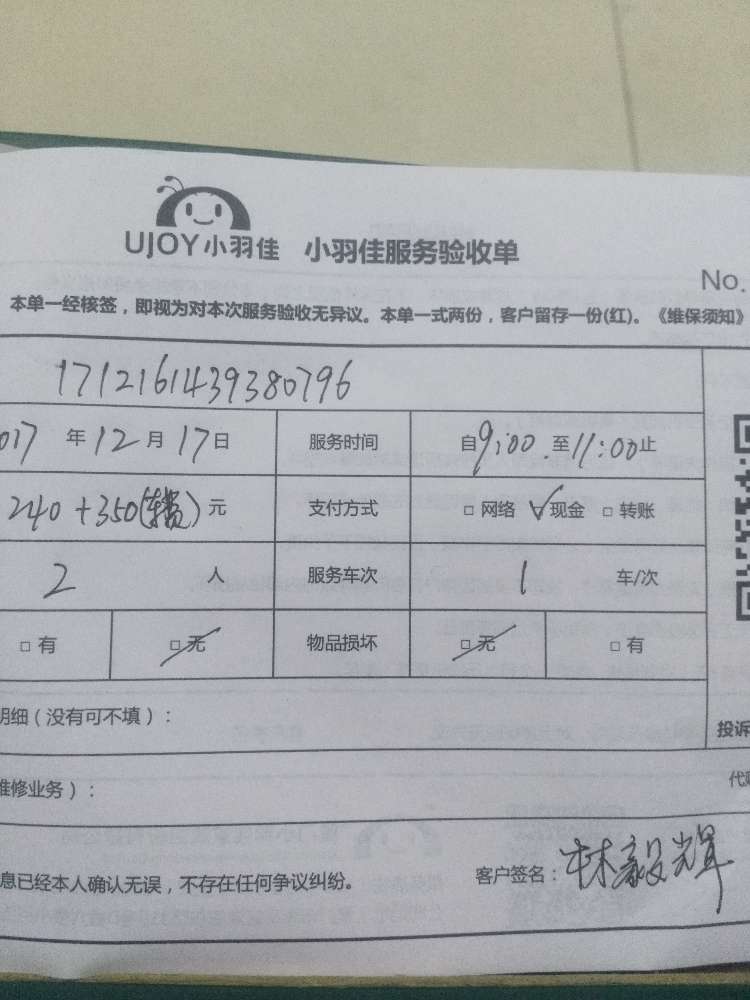 UJOY小羽佳 小羽佳服务验收单
No.
本单一经核签，即视为对本次服务验收无异议。本单一式两份，客户留存一份(红)。《维保须知》
1712161439380796
017 年 12 月 17 日 服务时间 自 9:00 至 11:00 止
240 + 350( ) 元 支付方式 □ 网络 ☑ 现金 □ 转账
2 人 服务车次 1 车/次
□ 有 □ 无 物品损坏 □ 无 □ 有
明细（没有可不填）：
投诉
维修业务）：
代
息已经本人确认无误，不存在任何争议纠纷。 客户签名：林毅辉